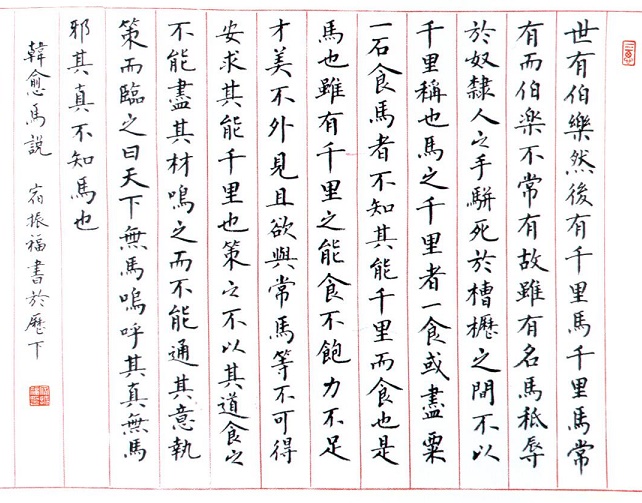 世有伯樂然後有千里馬千里馬常
有而伯楽不常有故雖有名馬秪辱
於奴隸人之手駢死於槽櫪之間不以
千里稱也馬之千里者一食或盡粟
一石食馬者不知其能千里而食也是
馬也雖有千里之能食不飽力不足
才美不外見且欲與常馬等不可得
安求其能千里也策之不以其道食之
不能盡其材鳴之而不能通其意執
策而臨之曰天下無馬嗚呼其真無馬
邪其真不知馬也
韓愈馬説 宿振福書於歷下